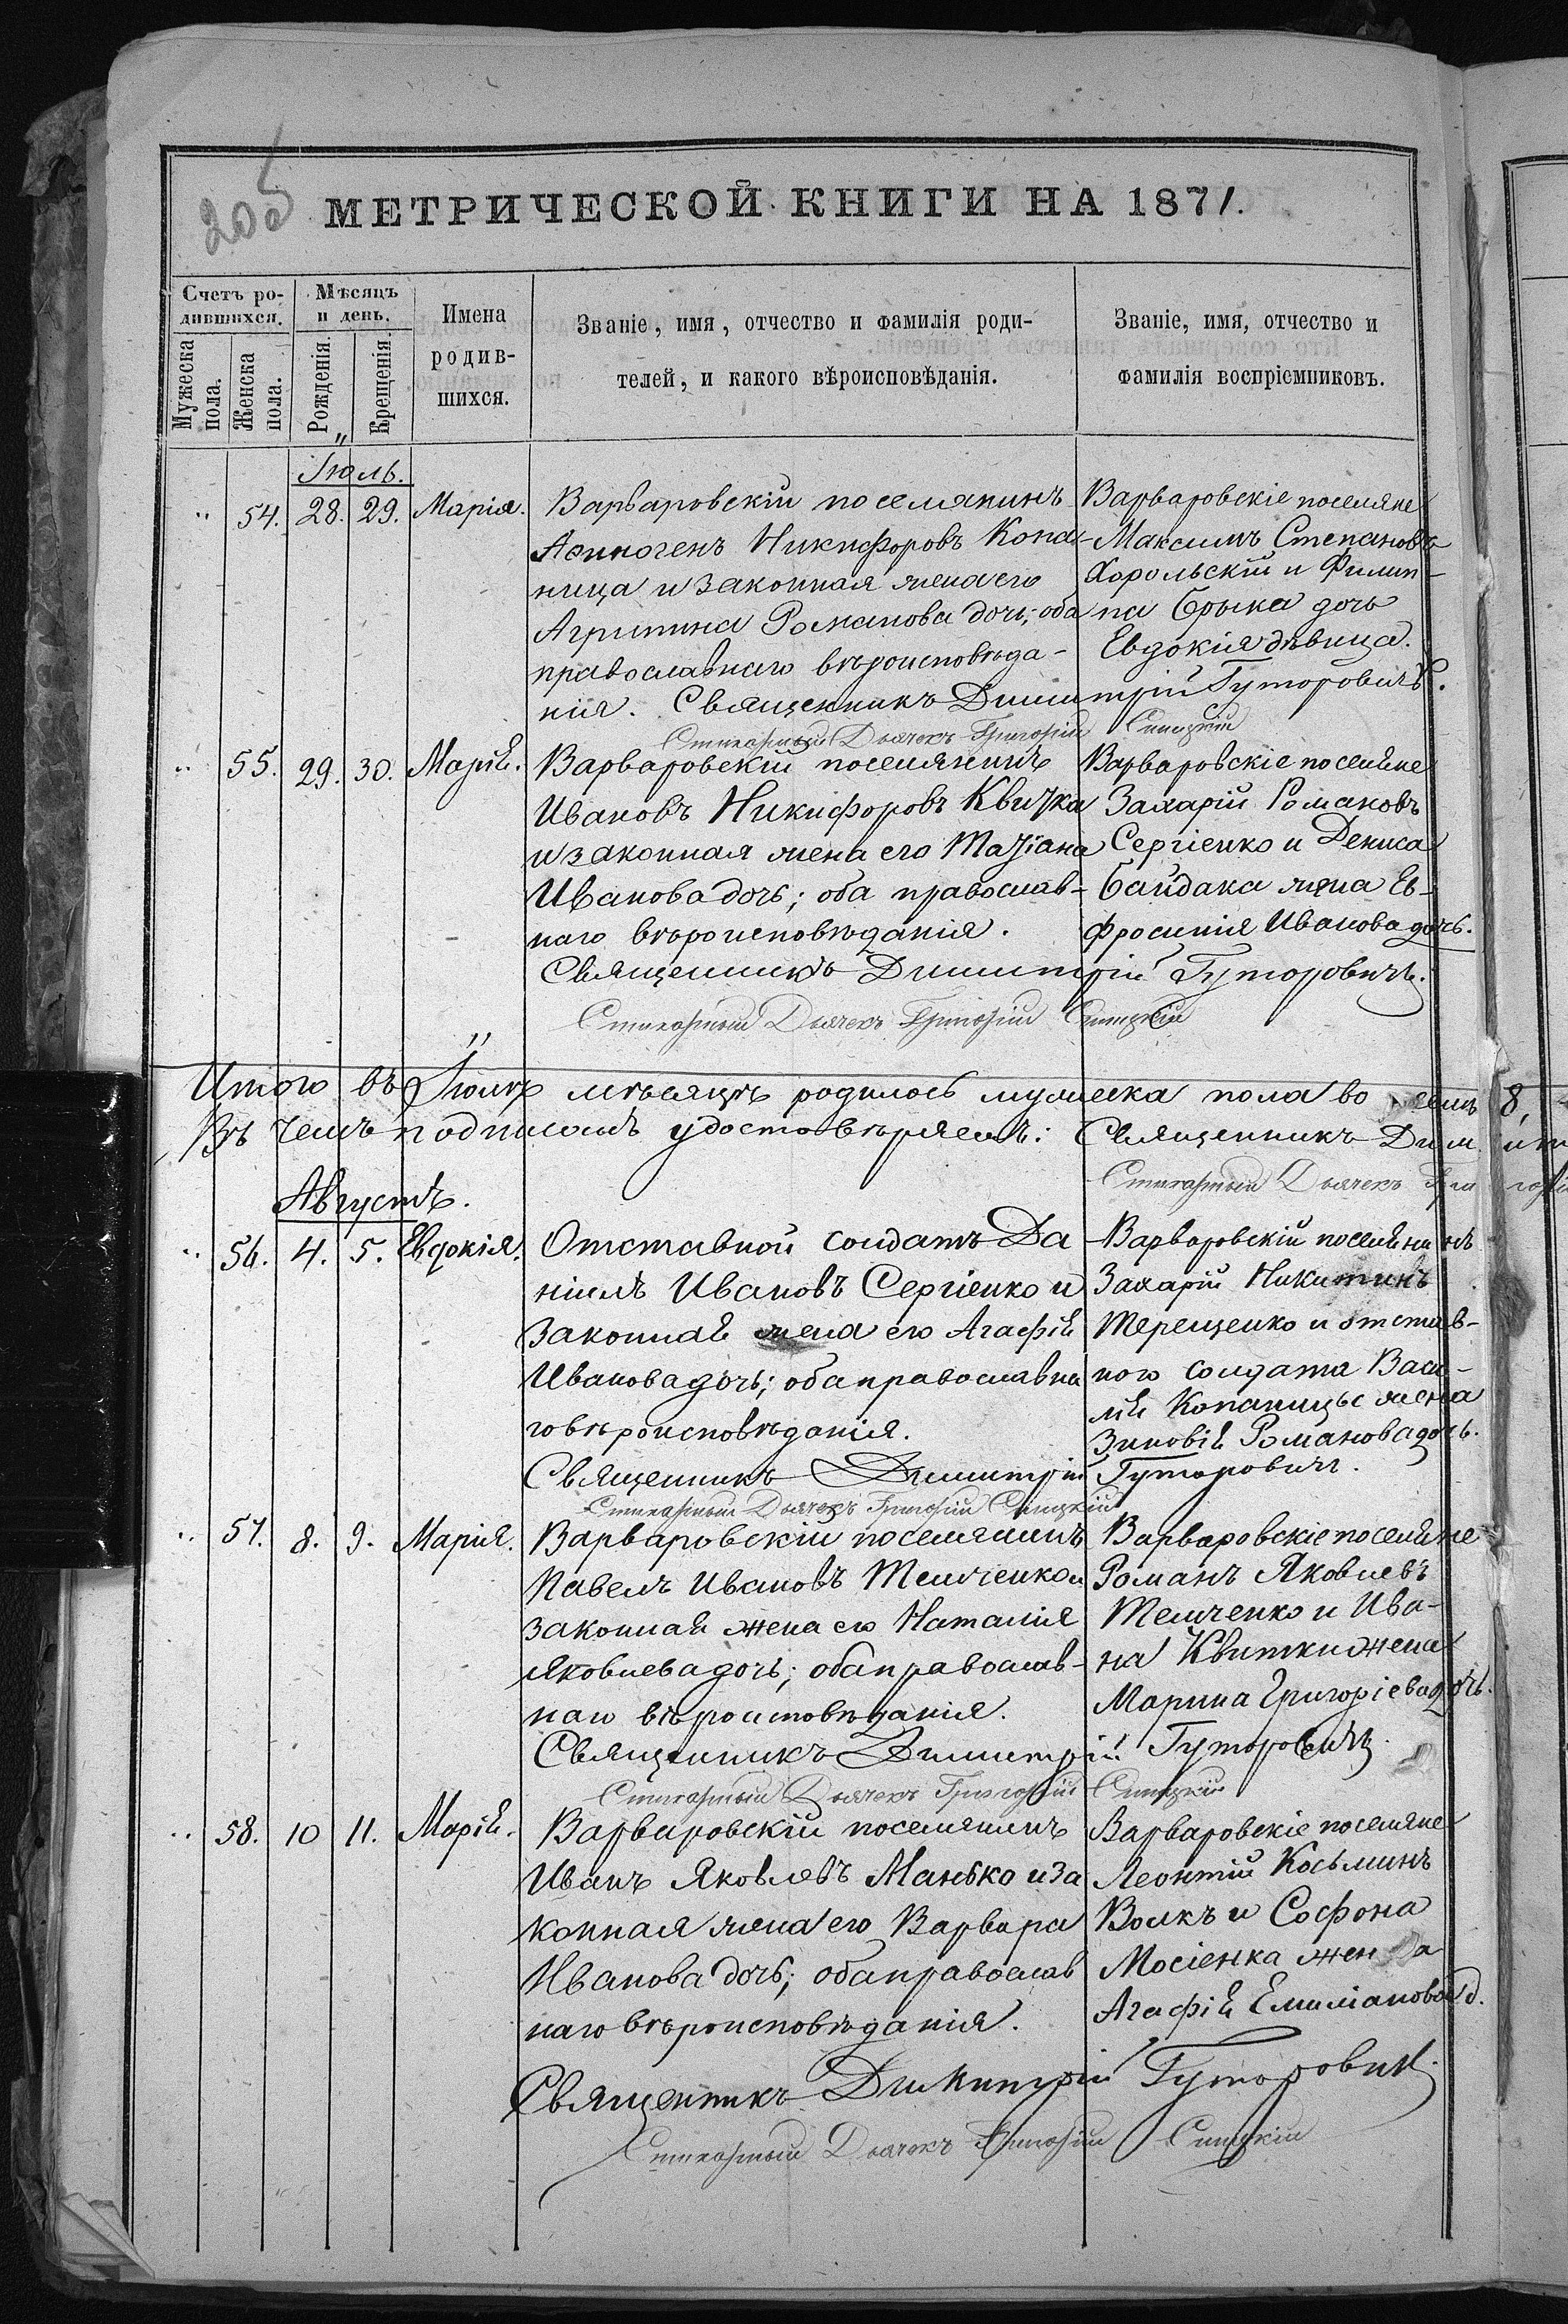 205
МЕТРИЧЕСКОЙ КНИГИ НА 1871.
Счетъ ро-
дившихся.
Мужеска
пола.
Женска
пола.
Мѣсяцъ
и день.
Рожденія.
Крещенія.
Имена
родив-
шихся.
Званіе, имя, отчество и фамилія роди-
телей, и какого вѣроисповѣданія.
Званіе, имя, отчество и
фамилія воспріемниковъ.
Іюль.
" 54. 28. 29. Марія. Варваровскій поселянинъ Варваровскіе поселяне
Аѳиногенъ Никифоровъ Копа- Максимъ Степановъ
ница и законная жена его Хорольскій и Филип-
Агрипина Романова дочь; оба па Брыка дочь
православнаго вѣроисповѣда- Евдокія дѣвица.
нія. Священникъ Димитрій Гуторовичъ.
Стихарный Дьячекъ Григорій Сницкій
" 55. 29. 30. Марія. Варваровскій поселянинъ Варваровскіе поселяне
Ивановъ Никифоровъ Квитка Захарій Романовъ
и законная жена его Татіана Сергіенко и Дениса
Иванова дочь; оба православ- Байдака жена Ев-
наго вѣроисповѣданія. фросинія Иванова дочь.
Священникъ Димитрій Гуторовичъ.
Стихарный Дьячекъ Григорій Сницкій
Итого въ Іюлѣ мѣсяцѣ родилось мужеска пола во семь 8,
Въ чемъ подписомъ удостовѣряемъ: Священникъ Димит
Стихарный Дьячекъ Григорі
Августъ.
" 56. 4. 5. Евдокія. Отставной солдатъ Да- Варваровскій поселянинъ
ніилъ Ивановъ Сергіенко и Захарій Никитинъ
законная жена его Агафія Терещенко и отстав-
Иванова дочь; оба православна ного солдата Васи-
го вѣроисповѣданія. лія Копаницы жена
Зиновія Романова дочь.
Священникъ Димитрій Гуторовичъ.
Стихарный Дьячекъ Григорій Сницкій
" 57. 8. 9. Марія. Варваровскій поселянинъ Варваровскіе поселяне
Павелъ Ивановъ Темченко и Романъ Яковлевъ
законная жена его Наталія Темченко и Ива-
Яковлева дочь; оба православ- на Квитки жена
наго вѣроисповѣданія. Марина Григоріева дочь.
Священникъ Димитрій Гуторовичъ
Стихарный Дьячекъ Григорій Сницкій
" 58. 10 11. Марія. Варваровскій поселянинъ Варваровскіе поселяне
Иванъ Яковлевъ Манько и за Леонтій Косьминъ
конная жена его Варвара Волкъ и Софона
Иванова дочь; оба православ Мосіенка жена
наго вѣроисповѣданія. Агафія Емиліанова д.
Священникъ Димитрій Гуторовичъ.
Стихарный Дьячекъ Григорій Сницкій